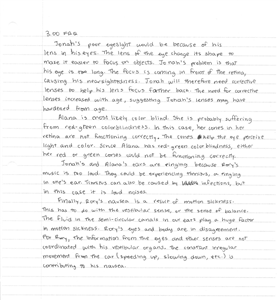 3.00 FRQ
Jonah's poor eyesight would be because of his
lens in his eyes. The lens of the eye change its shape to
make it easier to focus on objects. Jonah's problem is that
his eye is too long. The focus is coming in front of the retina,
causing his nearsightedness. Jonah will therefore need corrective
lenses to help his lens focus farther back. The need for corrective
lenses increased with age, suggesting Jonah's lenses may have
hardened from age.
Alana is most likely color blind. She is probably suffering
from red-green colorblindness. In this case, her cones in her
retina are not functioning correctly. The cones help the eye perceive
light and color. Since Alana has red-green color blindness, either
her red or green cones would not be functioning correctly.
Jonah's and Alana's ears are ringing because Rory's
music is too loud. They could be experiencing tinnitus, or ringing
in the ear. Tinnitus can also be caused by infections, but
in this case it is loud noises
Finally, Rory's nausea is a result of motion sickness.
This has to do with the vestibular sense, or the sense of balance.
The fluid in the semi-circular canals in our ears play a huge factor
in motion sickness. Rory's eyes and body are in disagreement.
For Rory, the information from the eyes and other senses are not
coordinated with his vestibular organs. The constant irregular
movement from the car (speeding up, slowing down, etc.) is
contributing to his nausea.